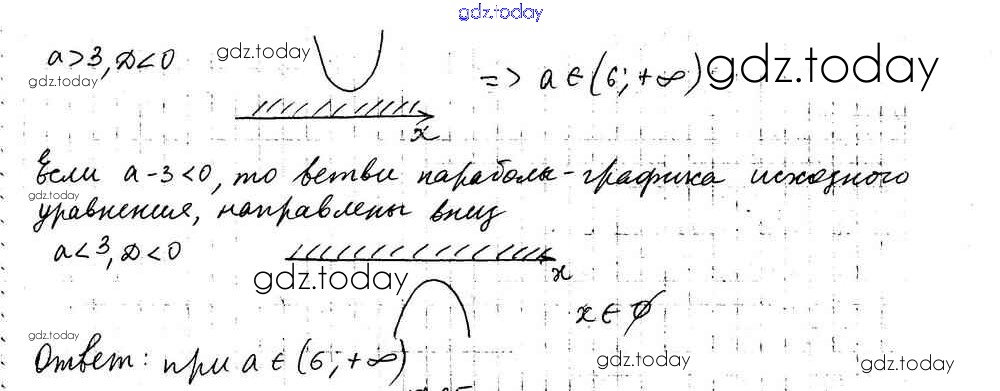 gdz.today
a>3, D<0 gdz.today
gdz.today
=> a ∈ (6; +∞) gdz.today
x
Если a-3<0, то ветви параболы - графика исходного
gdz.today
уравнения, направлены вниз
a<3, D<0
gdz.today
x
x ∈ ∅
gdz.today
Ответ: при a ∈ (6; +∞)
gdz.today
gdz.today